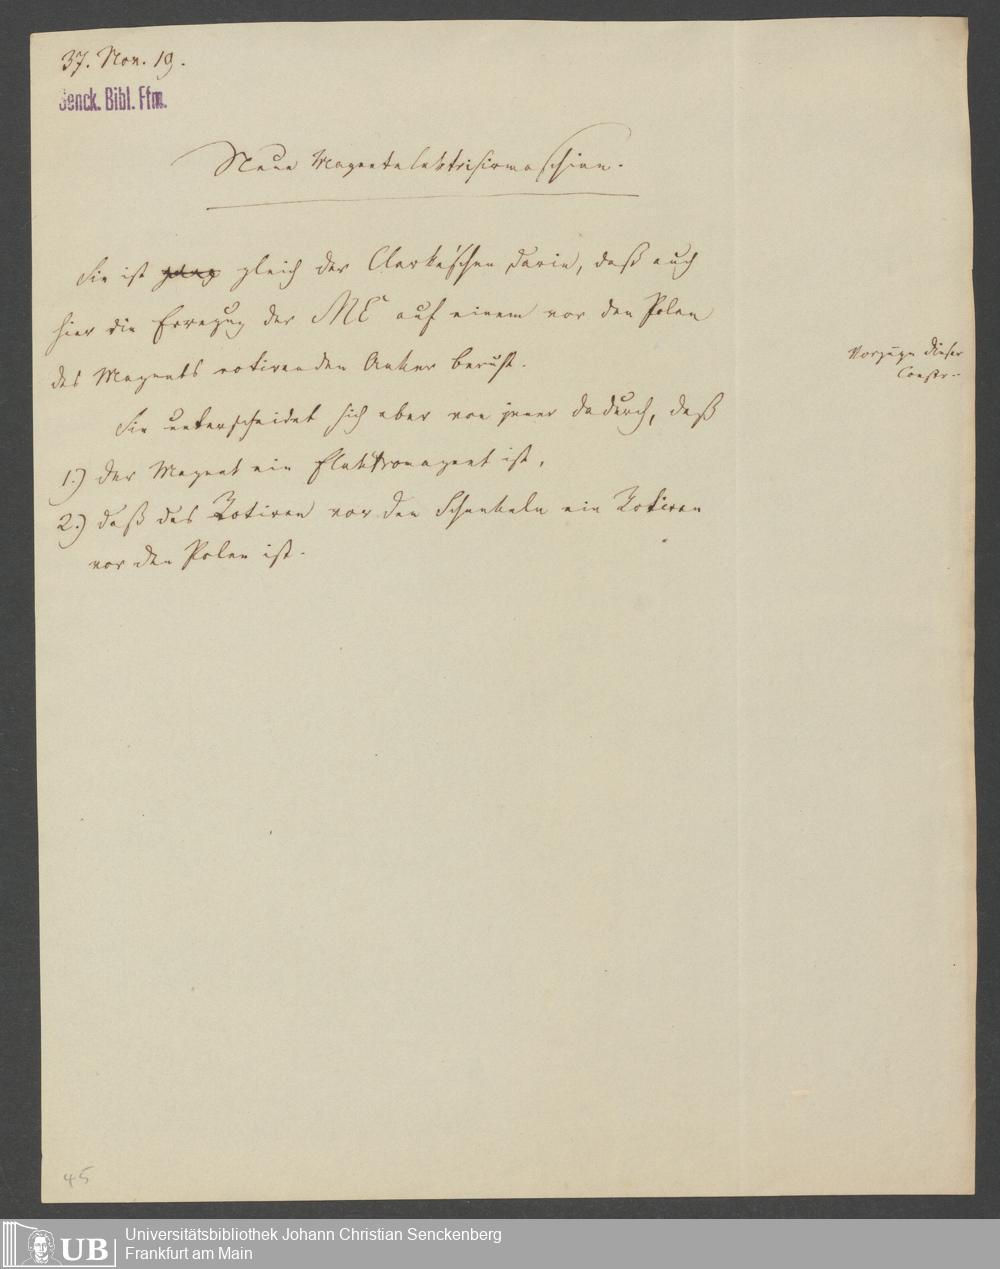 37. Nov. 19.
Senck. Bibl. Ffm.
Neue Magnetelektrisirmaschine.
Sie ist gleich der Clarke'schen darin, daß auch
hier die Erregung der ME auf einem vor den Polen
des Magnets rotirenden Anker beruht.
Vorzüge dieser
Constr..
Sie unterscheidet sich aber von jener dadurch, daß
1.) der Magnet ein Elektromagnet ist,
2.) daß das Rotiren vor den Schenkeln ein Rotiren
vor den Polen ist.
45
UB
Universitätsbibliothek Johann Christian Senckenberg
Frankfurt am Main